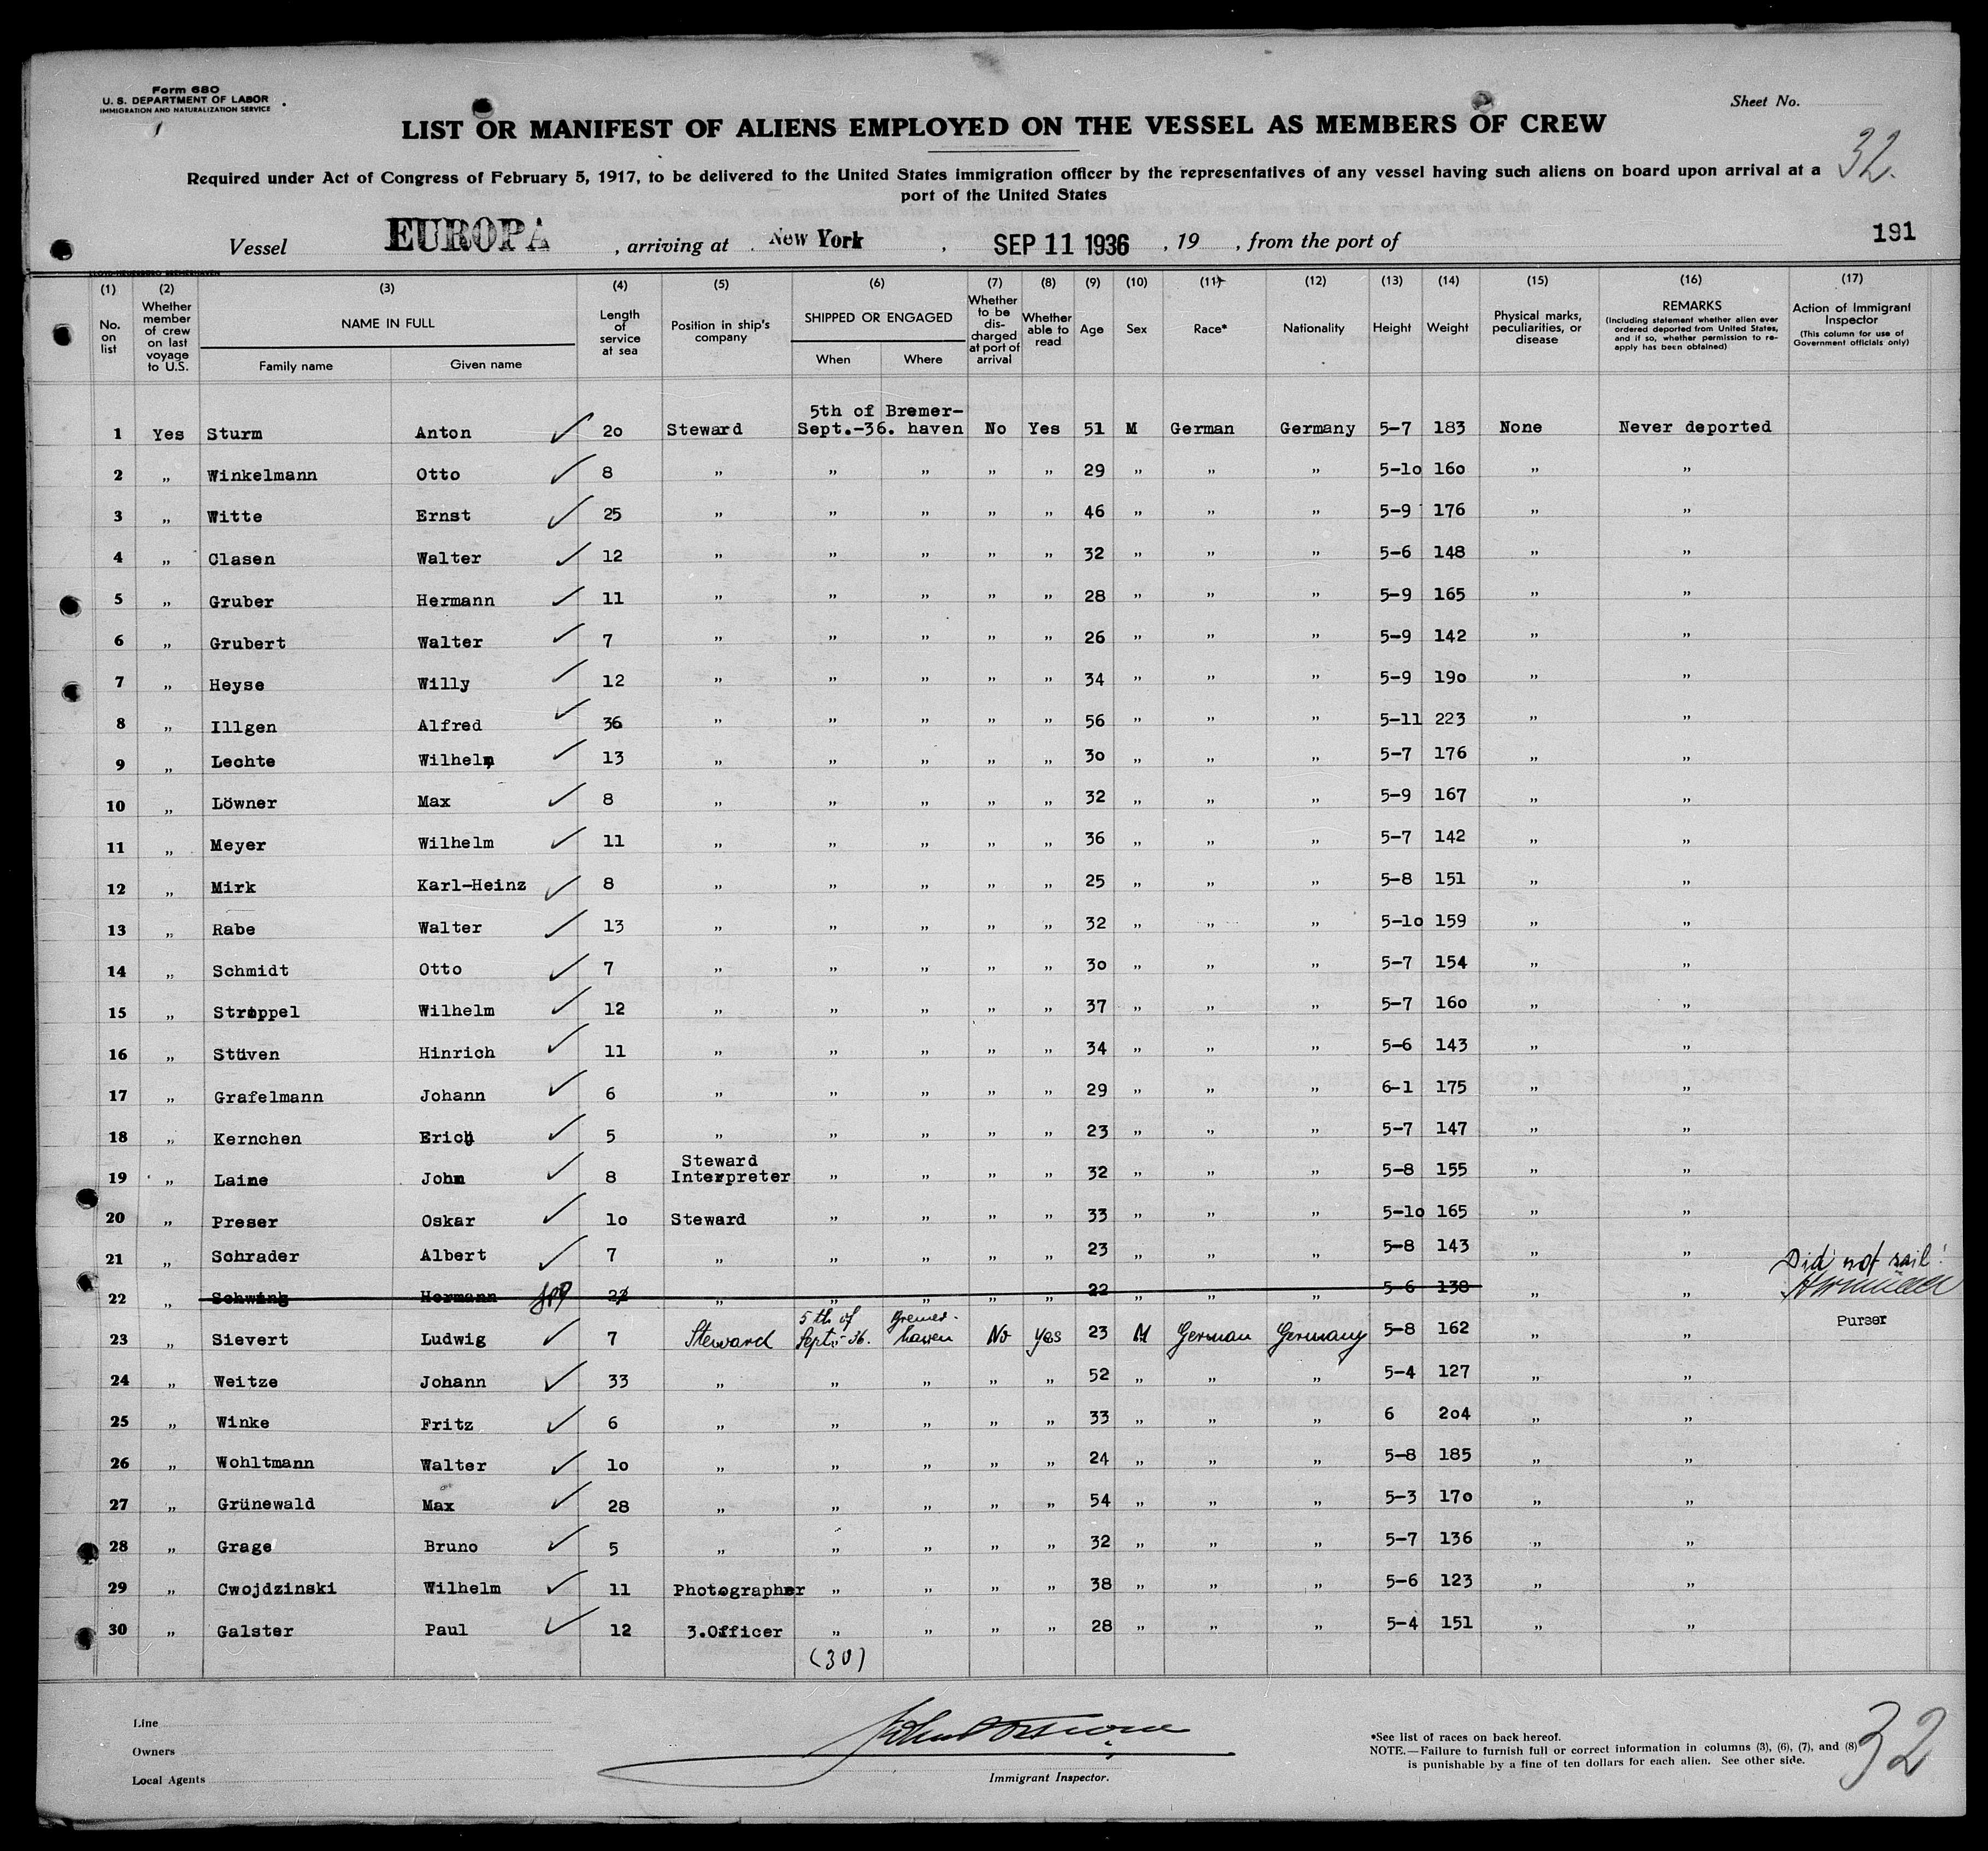 Form 680
U. S. DEPARTMENT OF LABOR
IMMIGRATION AND NATURALIZATION SERVICE
Sheet No.
LIST OR MANIFEST OF ALIENS EMPLOYED ON THE VESSEL AS MEMBERS OF CREW
32.
Required under Act of Congress of February 5, 1917, to be delivered to the United States immigration officer by the representatives of any vessel having such aliens on board upon arrival at a
port of the United States
Vessel EUROPA , arriving at New York , SEP 11 1936 , 19 , from the port of
191
(1) (2) (3) (4) (5) (6) (7) (8) (9) (10) (11) (12) (13) (14) (15) (16) (17)
No. on list Whether member of crew on last voyage to U.S. NAME IN FULL Family name Given name Length of service at sea Position in ship's company SHIPPED OR ENGAGED When Where Whether to be discharged at port of arrival Whether able to read Age Sex Race* Nationality Height Weight Physical marks, peculiarities, or disease REMARKS (Including statement whether alien ever ordered deported from United States, and if so, whether permission to re-apply has been obtained) Action of Immigrant Inspector (This column for use of Government officials only)
5th of Bremer-
1 Yes Sturm Anton ✓ 20 Steward Sept.-36. haven No Yes 51 M German Germany 5-7 183 None Never deported
2 " Winkelmann Otto ✓ 8 " " " " " 29 " " " 5-10 160 " "
3 " Witte Ernst ✓ 25 " " " " " 46 " " " 5-9 176 " "
4 " Clasen Walter ✓ 12 " " " " " 32 " " " 5-6 148 " "
5 " Gruber Hermann ✓ 11 " " " " " 28 " " " 5-9 165 " "
6 " Grubert Walter ✓ 7 " " " " " 26 " " " 5-9 142 " "
7 " Heyse Willy ✓ 12 " " " " " 34 " " " 5-9 190 " "
8 " Illgen Alfred ✓ 36 " " " " " 56 " " " 5-11 223 " "
9 " Lechte Wilhelm ✓ 13 " " " " " 30 " " " 5-7 176 " "
10 " Löwner Max ✓ 8 " " " " " 32 " " " 5-9 167 " "
11 " Meyer Wilhelm ✓ 11 " " " " " 36 " " " 5-7 142 " "
12 " Mirk Karl-Heinz ✓ 8 " " " " " 25 " " " 5-8 151 " "
13 " Rabe Walter ✓ 13 " " " " " 32 " " " 5-10 159 " "
14 " Schmidt Otto ✓ 7 " " " " " 30 " " " 5-7 154 " "
15 " Stroppel Wilhelm ✓ 12 " " " " " 37 " " " 5-7 160 " "
16 " Stüven Hinrich ✓ 11 " " " " " 34 " " " 5-6 143 " "
17 " Grafelmann Johann ✓ 6 " " " " " 29 " " " 6-1 175 " "
18 " Kernchen Erich ✓ 5 " " " " " 23 " " " 5-7 147 " "
Steward
19 " Laine John ✓ 8 Interpreter " " " " 32 " " " 5-8 155 " "
20 " Preser Oskar ✓ 10 Steward " " " " 33 " " " 5-10 165 " "
21 " Schrader Albert ✓ 7 " " " " " 23 " " " 5-8 143 " " Did not sail!
22 " Schwing Hermann 22 " " " " " 22 " " " 5-6 138
5th of Bremer-
23 " Sievert Ludwig ✓ 7 Steward Sept.-36. haven No Yes 23 M German Germany 5-8 162 " " Purser
24 " Weitze Johann ✓ 33 " " " " " 52 " " " 5-4 127 " "
25 " Winke Fritz ✓ 6 " " " " " 33 " " " 6 204 " "
26 " Wohltmann Walter ✓ 10 " " " " " 24 " " " 5-8 185 " "
27 " Grünewald Max ✓ 28 " " " " " 54 " " " 5-3 170 " "
28 " Grage Bruno ✓ 5 " " " " " 32 " " " 5-7 136 " "
29 " Cwojdzinski Wilhelm ✓ 11 Photographer " " " " 38 " " " 5-6 123 " "
30 " Galster Paul ✓ 12 3.Officer " " " " 28 " " " 5-4 151 " "
(30)
Line
Owners
Local Agents
Immigrant Inspector.
*See list of races on back hereof.
NOTE.—Failure to furnish full or correct information in columns (3), (6), (7), and (8)
is punishable by a fine of ten dollars for each alien. See other side.
32